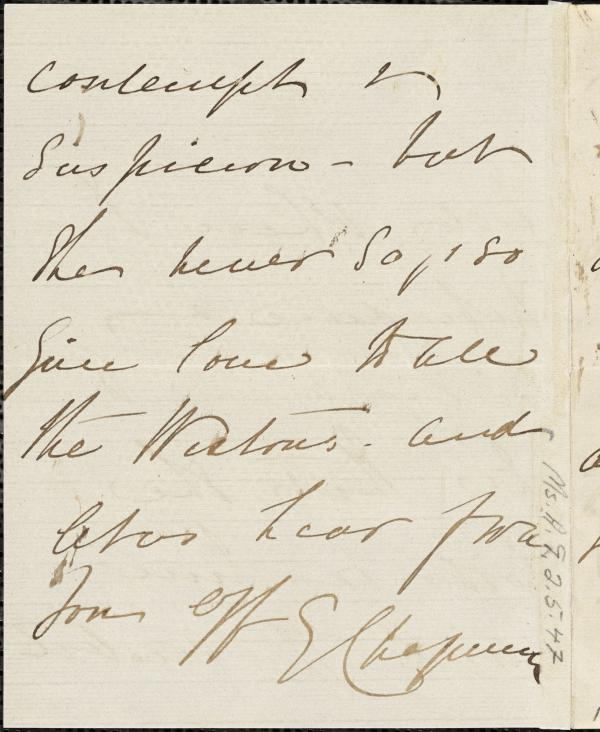 contempt &
Suspicion - but
She never says so
Give love to all
the Westons - and
let us hear from
Yours aff
E Chapman
Ms.A.9.2.5.47